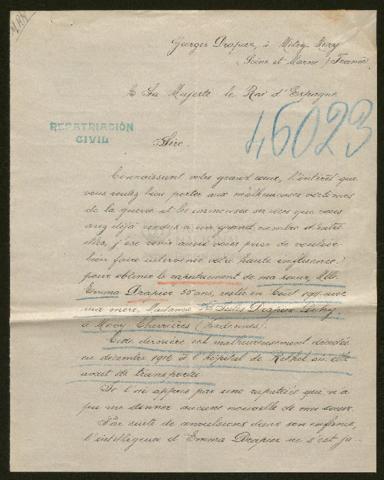 Georges Drapier, à Mitry-Mory
Seine et Marne (France)
à Sa Majesté le Roi d'Espagne
REPATRIACIÓN
CIVIL
46023
Sire,
Connaissant votre grand cœur, l'intérêt que
vous voulez bien porter aux malheureuses victimes
de la guerre et les immenses services que vous
avez déjà rendus à un grand nombre d'entre
elles, j'ose venir aussi vous prier de vouloir
bien faire intervenir votre haute influence
pour obtenir le rapatriement de ma sœur, Mlle
Emma Drapier 55 ans, restée en 1914 avec
ma mère, Madame Drapier
à Chevrières (Ardennes)
Cette dernière est malheureusement décédée
en décembre 1916 à l'hôpital de Rethel où elle
avait été transportée
Je l'ai appris par une rapatriée qui n'a
pu me donner aucune nouvelle de ma sœur.
Par suite de convulsions dans son enfance,
l'intelligence d'Emma Drapier ne s'est ja-